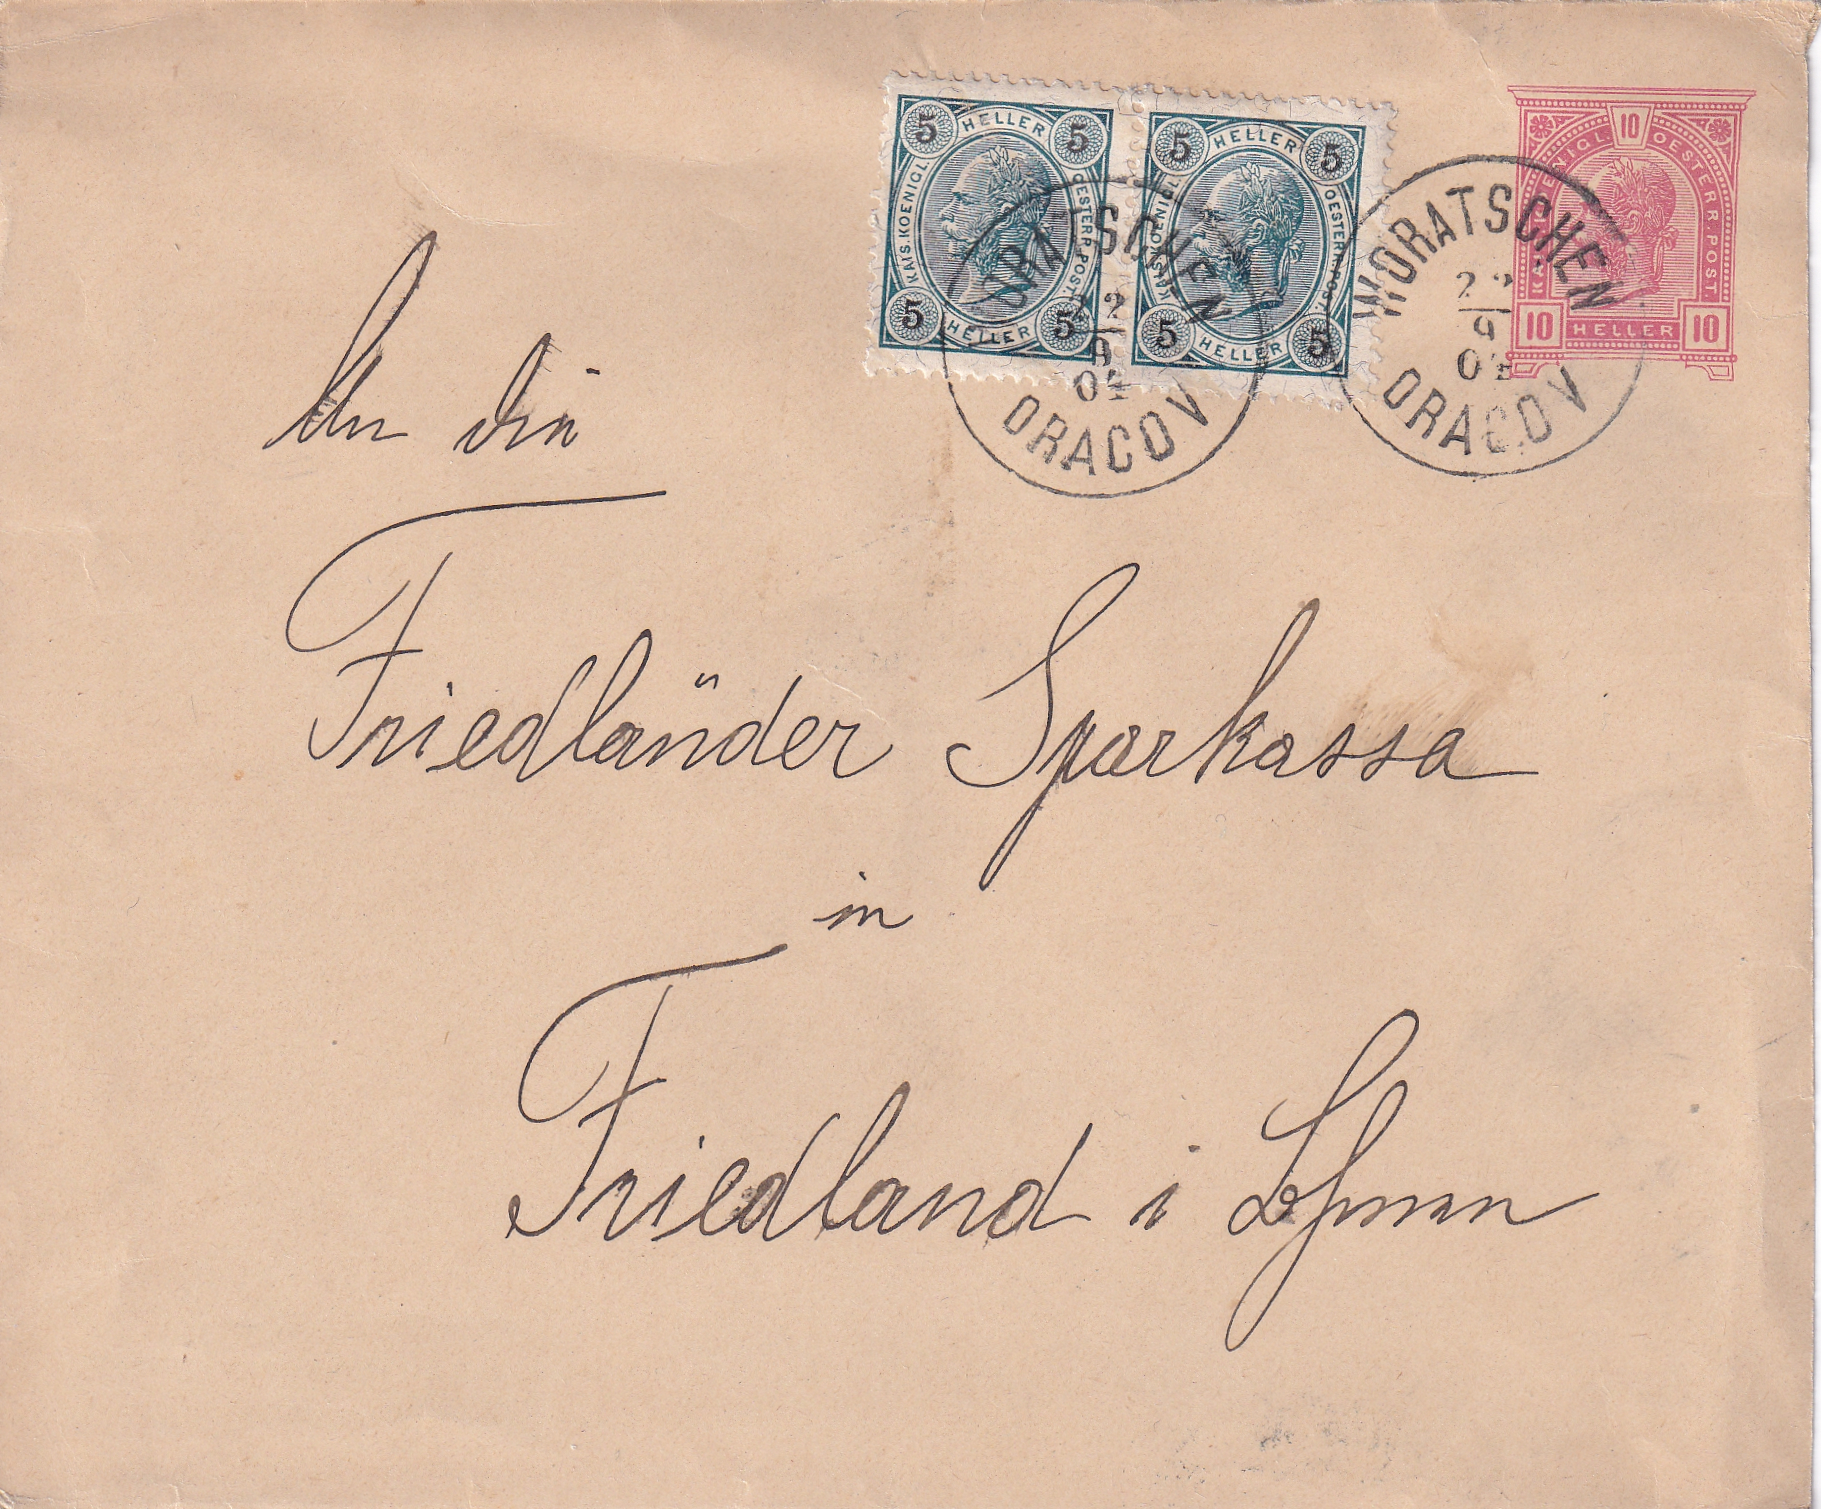 5 HELLER 5
KAIS. KOENIGL. OESTERR. POST.
5 HELLER 5
5 HELLER 5
KAIS. KOENIGL. OESTERR. POST.
5 HELLER 5
10
KAIS. KOENIGL. OESTERR. POST.
10 HELLER 10
WORATSCHEN
22
9
04
ORACOV
WORATSCHEN
22
9
ORACOV
An die
Friedländer Sparkassa
in
Friedland i